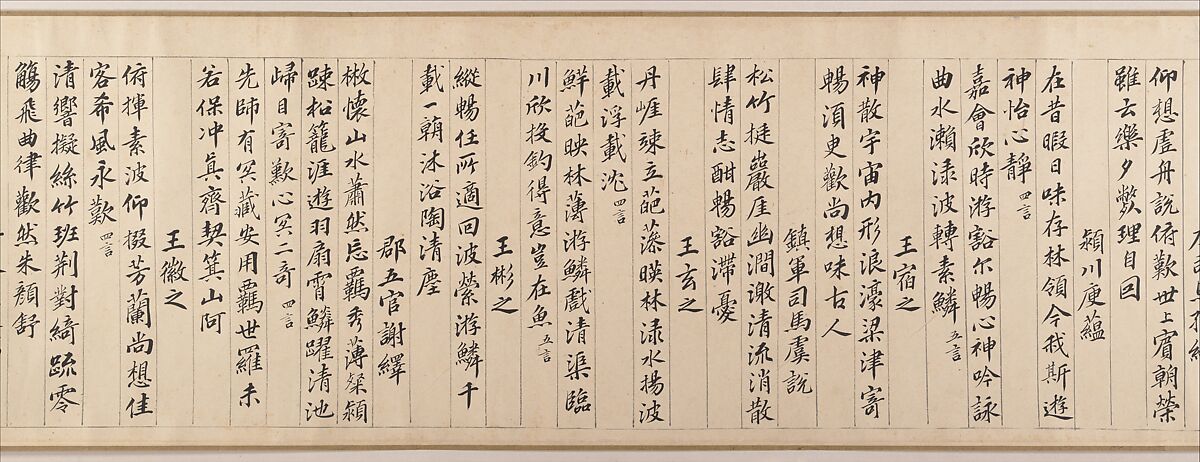 仰想虛舟說俯歎世上賓朝榮
雖云樂夕斃理自回
潁川庾蘊
在昔暇日味存林領今我斯遊
神怡心靜 四言
嘉會欣時游豁尔暢心神吟詠
曲水瀨淥波轉素鱗 五言
王宿之
神散宇宙內形浪濠梁津寄
暢須臾歡尚想味古人
鎮軍司馬虞說
松竹挺巖厓幽澗激清流消散
肆情志酣暢豁滯憂
王玄之
丹崖竦立葩藻暎林淥水揚波
載浮載沈 四言
鮮葩映林薄游鱗戲清渠臨
川欣投釣得意豈在魚 五言
王彬之
縱暢任所適回波縈游鱗千
載一朝沐浴陶清塵
郡五官謝繹
散懷山水蕭然忘羈秀薄粲潁
踈松籠涯遊羽扇霄鱗躍清池
歸目寄歎心冥二奇 四言
先師有冥藏安用羈世羅未
若保冲真齊契箕山阿
王徽之
俯揮素波仰掇芳蘭尚想佳
客希風永歎 四言
清響擬絲竹班荆對綺疏零
觴飛曲律歡然朱顏舒